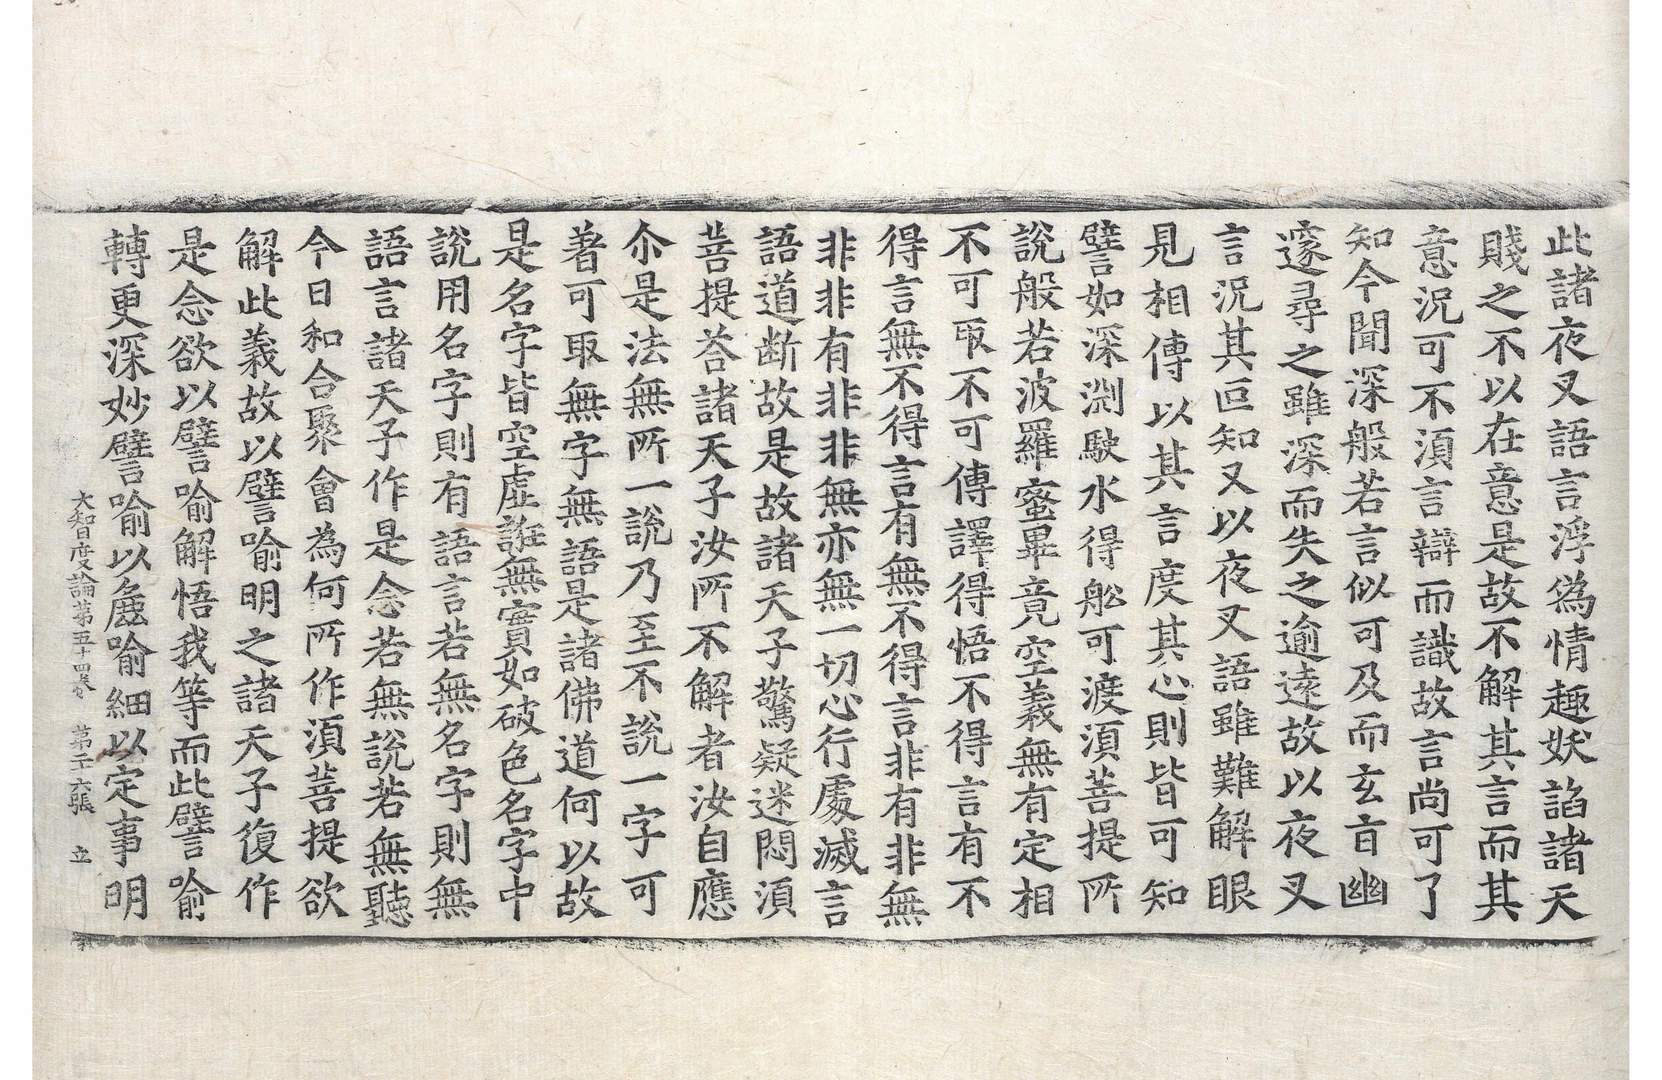 此諸夜叉語言浮偽情趣妖諂諸天
賤之不以在意是故不解其言而其
意況可不須言辯而識故言尚可了
知今聞深般若言似可及而玄旨幽
邃尋之雖深而失之逾遠故以夜叉
言況其叵知又以夜叉語雖難解眼
見相傳以其言度其心則皆可知
譬如深渕駛水得舩可渡須菩提所
說般若波羅蜜畢竟空義無有定相
不可取不可傳譯得悟不得言有不
得言無不得言有無不得言非有非無
非非有非非無亦無一切心行處滅言
語道断故是故諸天子驚疑迷悶須
菩提荅諸天子汝所不解者汝自應
尒是法無所一說乃至不說一字可
著可取無字無語是諸佛道何以故
是名字皆空虛誑無實如破色名字中
說用名字則有語言若無名字則無
語言諸天子作是念若無說若無聽
今日和合聚會為何所作須菩提欲
解此義故以譬喻明之諸天子復作
是念欲以譬喻解悟我等而此譬喻
轉更深妙譬喻以麁喻細以定事明
大智度論第五十四卷 第二十六張 立